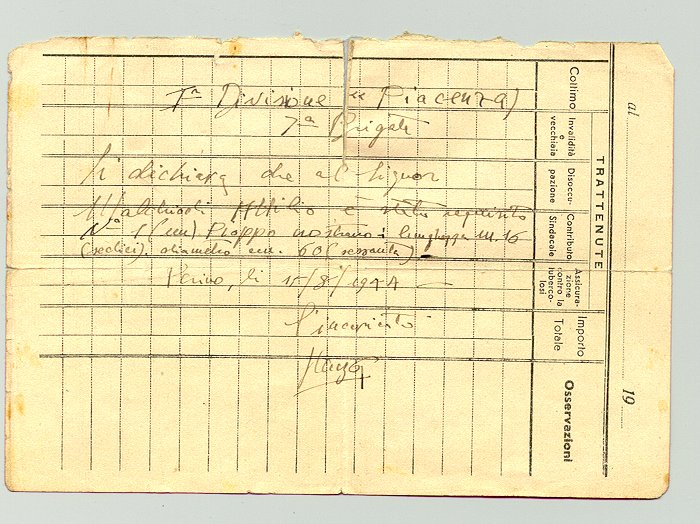 Iª Divisione "Piacenza)
7ª Brigata
Si dichiara che al Signor
Attilio è stato requisito
Nº 1 (un) Pioppo nostrano: lunghezza m. 16
(sedici). diametro cm. 60 (sessanta)
Perino, li 15/8/1944
L'incaricato
TRATTENUTE
Cottimo
Invalidità e vecchiaia
Disoccupazione
Contributo Sindacale
Assicurazione contro la tubercolosi
Importo Totale
Osservazioni
al
19